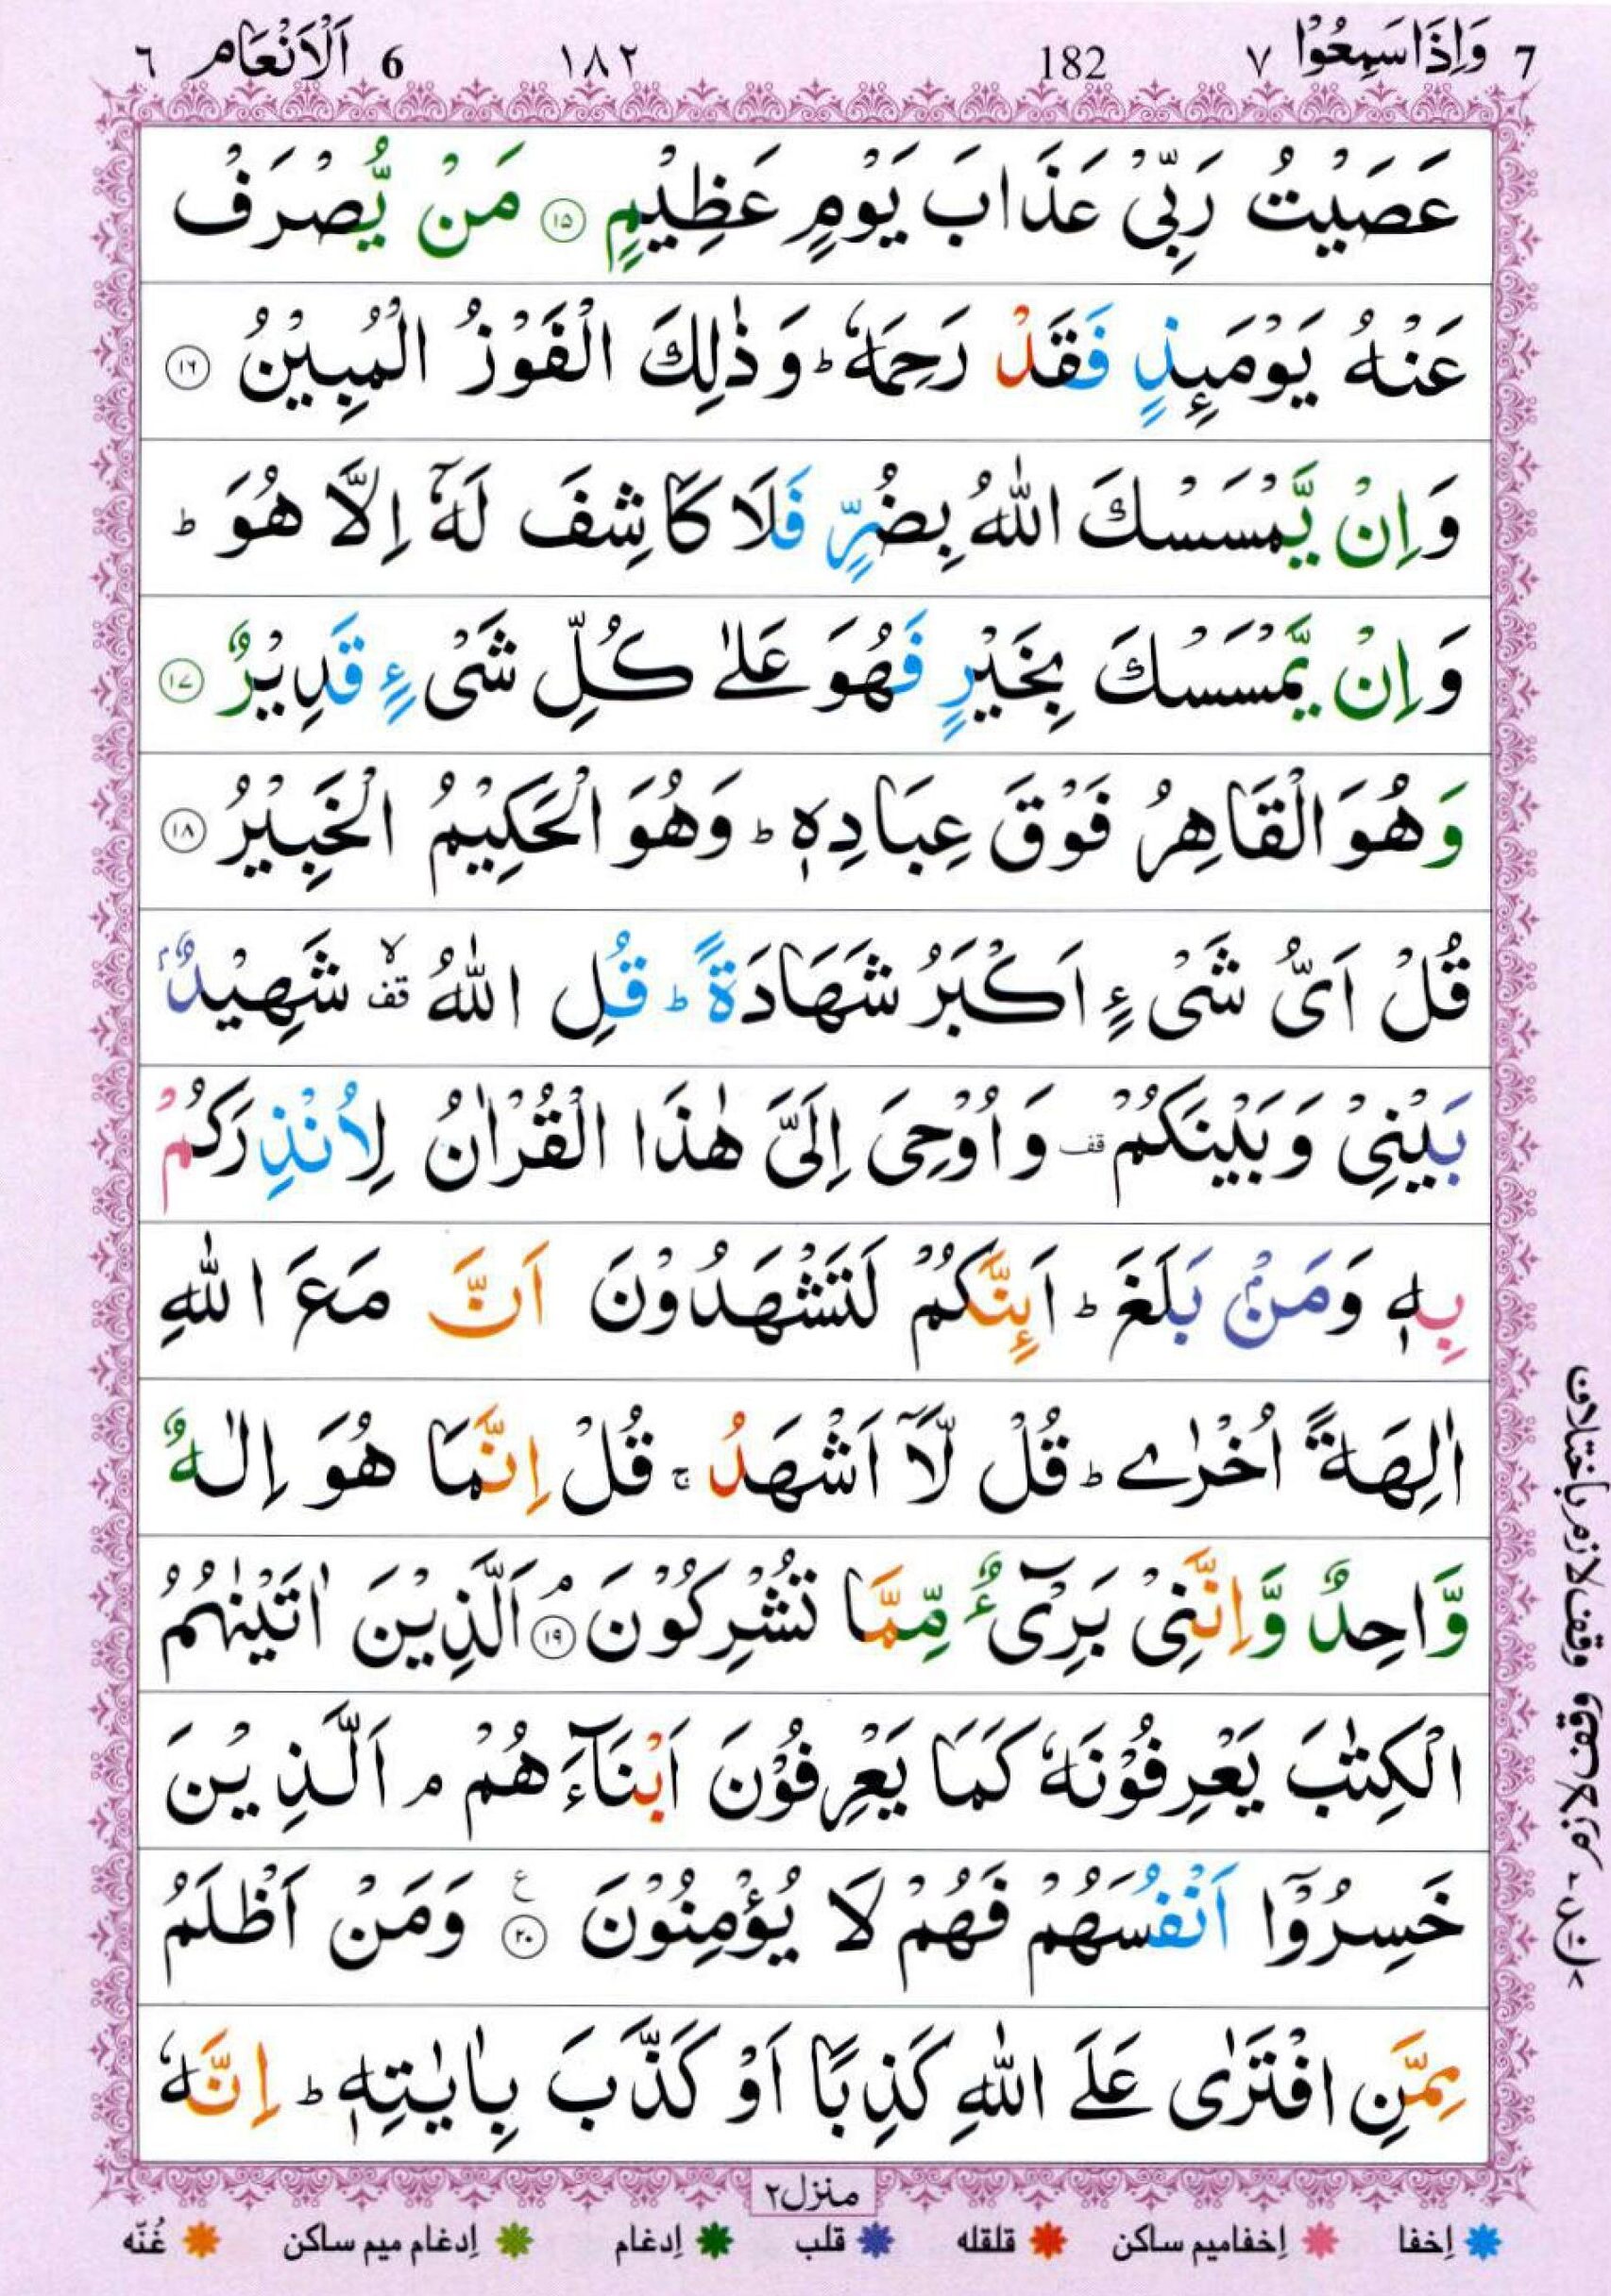 7 وَاِذَاسَمِعُوْا ٧ 182 ١٨٢ 6 اَلْاَنْعَام ٦
عَصَيْتُ رَبِّىْ عَذَابَ يَوْمٍ عَظِيْمٍ ۱۵ مَنْ يُّصْرَفْ
عَنْهُ يَوْمَٮِٕذٍ فَقَدْ رَحِمَهٗ ؕ وَ ذٰلِكَ الْفَوْزُ الْمُبِيْنُ ۱۶
وَاِنْ يَّمْسَسْكَ اللّٰهُ بِضُرٍّ فَلَا كَاشِفَ لَهٗۤ اِلَّا هُوَ ؕ
وَاِنْ يَّمْسَسْكَ بِخَيْرٍ فَهُوَ عَلٰى كُلِّ شَىْءٍ قَدِيْرٌ ۱۷
وَهُوَ الْقَاهِرُ فَوْقَ عِبَادِهٖ ؕ وَهُوَ الْحَكِيْمُ الْخَبِيْرُ ۱۸
قُلْ اَىُّ شَىْءٍ اَكْبَرُ شَهَادَةً ؕ قُلِ اللّٰهُ ۙ قف شَهِيْدٌۢ
بَيْنِىْ وَبَيْنَكُمْ قف وَاُوْحِىَ اِلَىَّ هٰذَا الْقُرْاٰنُ لِاُنْذِرَكُمْ
بِهٖ وَمَنْۢ بَلَغَ ؕ اَٮِٕنَّكُمْ لَتَشْهَدُوْنَ اَنَّ مَعَ اللّٰهِ
اٰلِهَةً اُخْرٰى ؕ قُلْ لَّاۤ اَشْهَدُ ۚ قُلْ اِنَّمَا هُوَ اِلٰهٌ
وَّاحِدٌ وَّاِنَّنِىْ بَرِىْٓءٌ مِّمَّا تُشْرِكُوْنَ ۘ ۱۹ اَلَّذِيْنَ اٰتَيْنٰهُمُ
الْكِتٰبَ يَعْرِفُوْنَهٗ كَمَا يَعْرِفُوْنَ اَبْنَآءَهُمْ ۘ اَلَّذِيْنَ
خَسِرُوْۤا اَنْفُسَهُمْ فَهُمْ لَا يُؤْمِنُوْنَ ۲۰ ع وَمَنْ اَظْلَمُ
مِمَّنِ افْتَرٰى عَلَى اللّٰهِ كَذِبًا اَوْ كَذَّبَ بِاٰيٰتِهٖ ؕ اِنَّهٗ
منزل۲
إخفا إخفاميم ساكن قلقله قلب إدغام إدغام ميم ساكن غُنّه
وقف لازم باختلاف